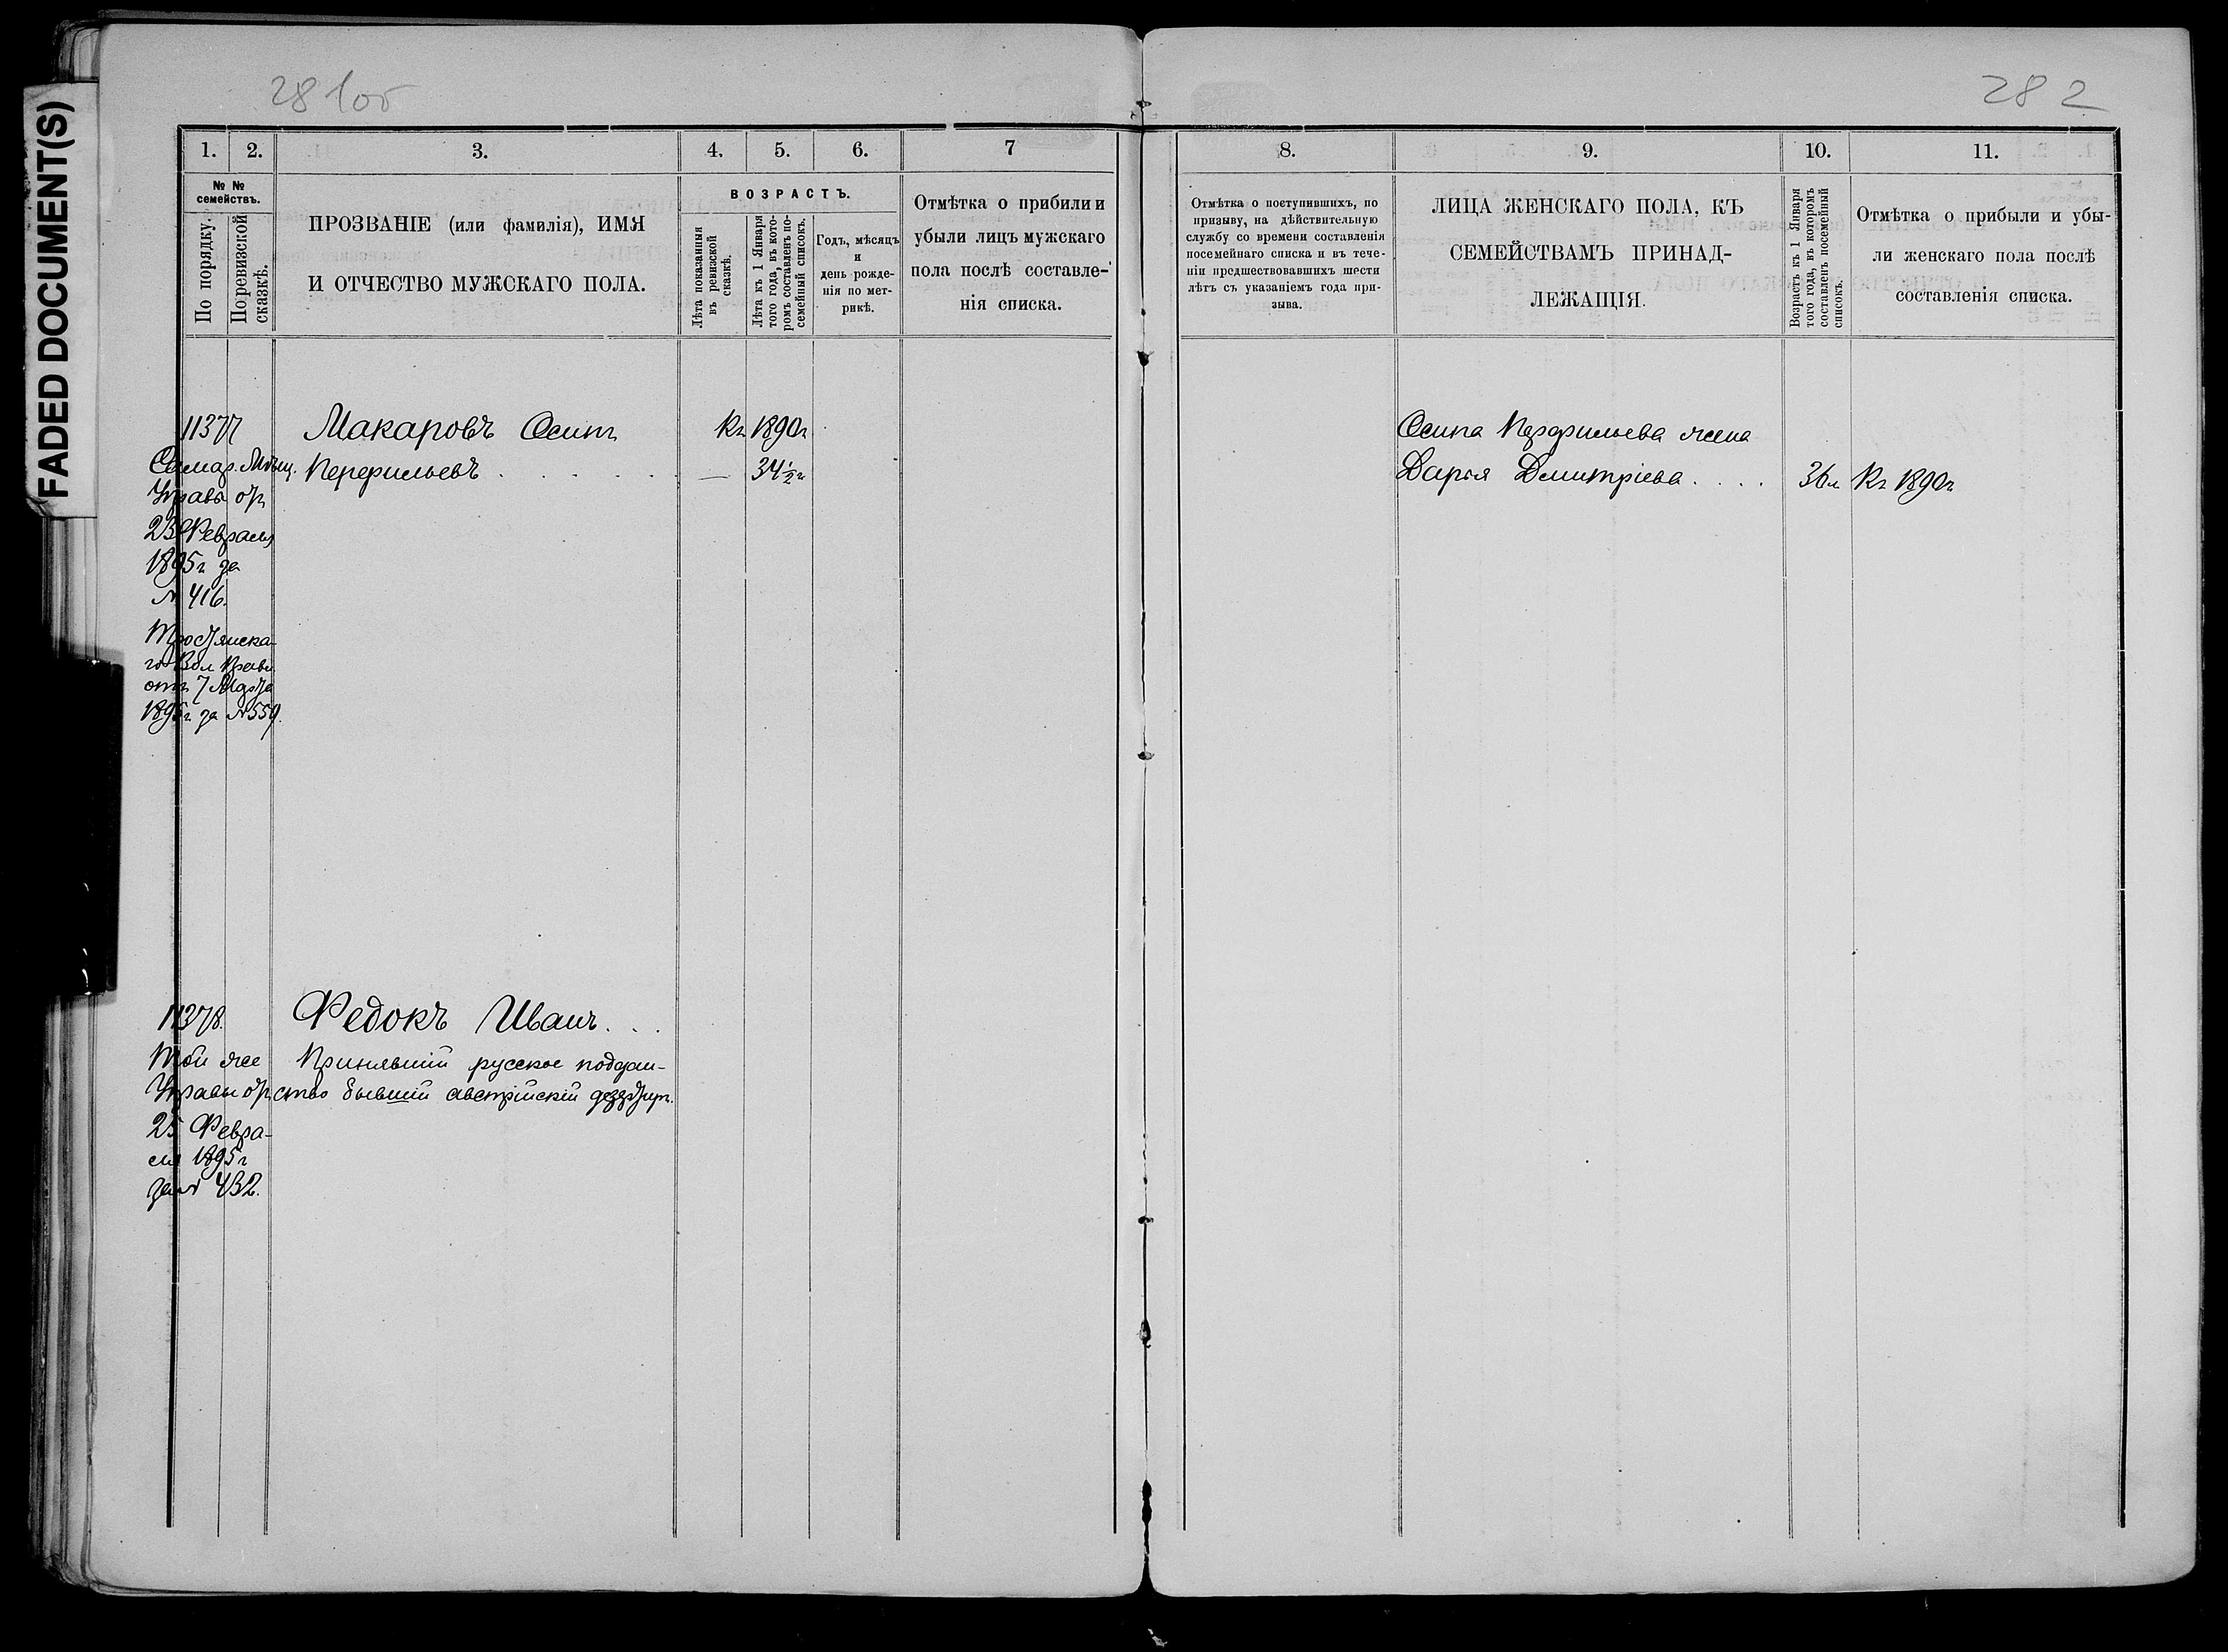 FADED DOCUMENT(S)
281об
282
1. 2. 3. 4. 5. 6. 7
№ №
семействъ.
По порядку.
По ревизской
сказкѣ.
ПРОЗВАНІЕ (или фамилія), ИМЯ
И ОТЧЕСТВО МУЖСКАГО ПОЛА.
ВОЗРАСТЪ.
Лѣта показанныя
въ ревизской
сказкѣ.
Лѣта къ 1 Января
того года, въ кото-
ромъ составленъ по-
семейный списокъ.
Годъ, мѣсяцъ
и
день рожде-
нія по мет-
рикѣ.
Отмѣтка о прибили и
убыли лицъ мужскаго
пола послѣ составле-
нія списка.
11377
Самар. Мѣщ.
Управа отъ
23 Февраля
1895 г за
№ 416.
Тростянска-
го Вол Правл.
отъ 7 Марта
1895 г. за № 559.
Макаровъ Осипъ
Перфильевъ . . . . .
Къ 1890 г
— 34 ½ г
11378.
Той же
Управы отъ
25 Февра-
ля 1895 г
за № 432.
Федокъ Иванъ . . .
Принявшій русское поддан-
ство бывшій австрійскій дезертиръ.
8. 9. 10. 11.
Отмѣтка о поступившихъ, по
призыву, на дѣйствительную
службу со времени составленія
посемейнаго списка и въ тече-
ніи предшествовавшихъ шести
лѣтъ съ указаніемъ года при-
зыва.
ЛИЦА ЖЕНСКАГО ПОЛА, КЪ
СЕМЕЙСТВАМЪ ПРИНАД-
ЛЕЖАЩІЯ.
Возрастъ къ 1 Января
того года, въ которомъ
составленъ посемейный
списокъ.
Отмѣтка о прибыли и убы-
ли женскаго пола послѣ
составленія списка.
Осипа Перфильева жена
Дарья Дмитріева . . . . 36 л Къ 1890 г